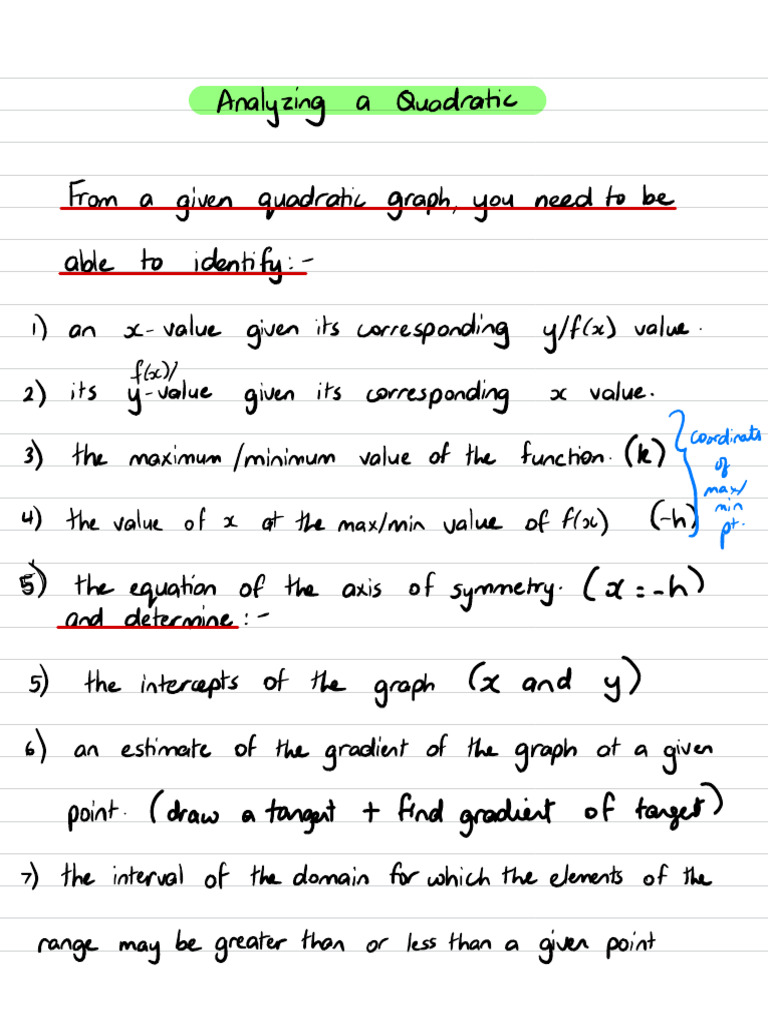 Analyzing a Quadratic
From a given quadratic graph, you need to be
able to identify:-
1) an x-value given its corresponding y/f(x) value.
f(x)/
2) its y-value given its corresponding x value.
3) the maximum/minimum value of the function. (k)
4) the value of x at the max/min value of f(x) (-h)
coordinate
of
max/
min
pt.
5) the equation of the axis of symmetry. (x = -h)
and determine:-
5) the intercepts of the graph (x and y)
6) an estimate of the gradient of the graph at a given
point. (draw a tangent + find gradient of tanget)
7) the interval of the domain for which the elements of the
range may be greater than or less than a given point